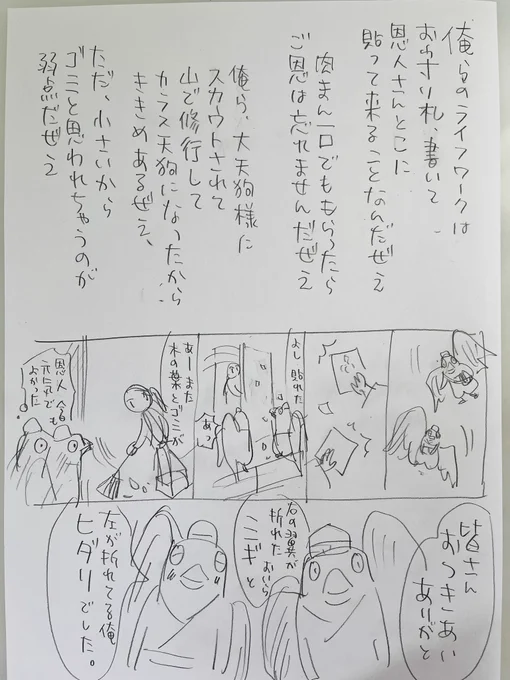 俺らのライフワークは
お守り札、書いて
恩人さんとこに
貼って来ることなんだぜえ
肉まん一口でももらったら
ご恩は忘れませんだぜえ
俺ら、大天狗様に
スカウトされて
山で修行して
カラス天狗になったから
ききめあるぜえ、
ただ、小さいから
ゴミと思われちゃうのが
弱点だぜえ
よし貼れた
あっ
あーまた
木の葉とゴミが
恩人今日も
元気で
よかった
皆さん
おつきあい
ありがと
右の翼が
折れたおいら
ミギと
左が折れてる俺
ヒダリでした。